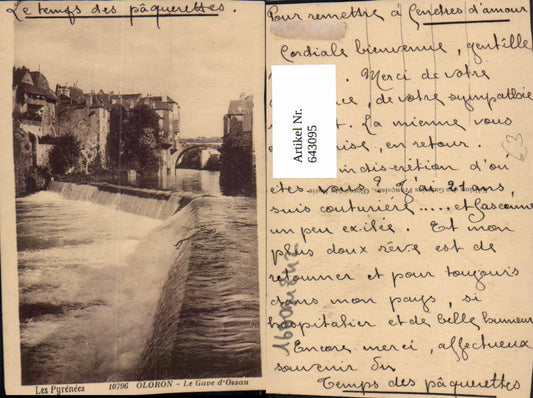 Le temps des pâquerettes.
Les Pyrénées
10796 OLORON - Le Gave d'Ossau
Pour remettre à Cendres d'amour
Cordiale bienvenue, gentille
. Merci de votre
, de votre sympathie
. La mienne vous
, en retour.
indiscrétion d'où
êtes vous ? J'ai 21 ans,
suis couturière ..... et Gasconne
un peu exilée. Et mon
plus doux rêve est de
retourner et pour toujours
dans mon pays, si
hospitalier et de belle humeur
Encore merci, affectueux
souvenir du
Temps des pâquerettes
Artikel Nr.
643095